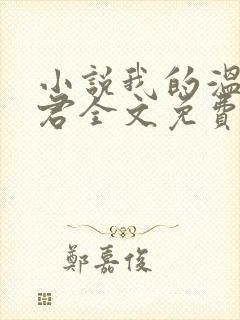 小説我的溫
君全文免費
鄭嘉俊